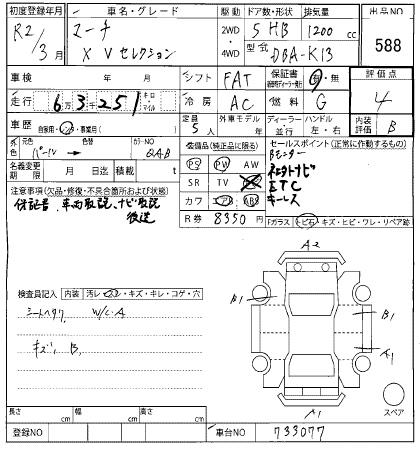 初度登録年月
R2/3月
車名・グレード
マーチ
XVセレクション
駆動
2WD
4WD
ドア数・形状
5 HB
排気量
1200 cc
型式
DBA-K13
出品NO
588
車検 年 月
シフト FAT
保証書 有・無
評価点
4
走行 6万3千251 キロ・マイル
冷房 AC
燃料 G
車歴 自家用・レンタ・事業用( )
定員 5人
外車モデル 年
ディーラー 並行
ハンドル 左・右
内装評価 B
外色 元色 パール 色替
カラーNO QAB
名義変更期限 月 日迄
積載 t
装備品(純正品に限る)
PS PW AW
SR TV
カワ エアB ABS
R券 8350 円
セールスポイント(正常に作動するもの)
Bモニター
ETC
キーレス
注意事項(欠品・修復・不具合箇所および状態)
保証書、車両取説、ナビ取説
後送
Fガラス トビ石・キズ・ヒビ・ワレ・リペア跡
検査員記入 内装 汚レ・・キズ・キレ・コゲ・穴
W/C・A
キズ、B、
A2
B1
B1
A1
A1
スペア
長さ cm 幅 cm 高さ cm
登録NO
車台NO 733077